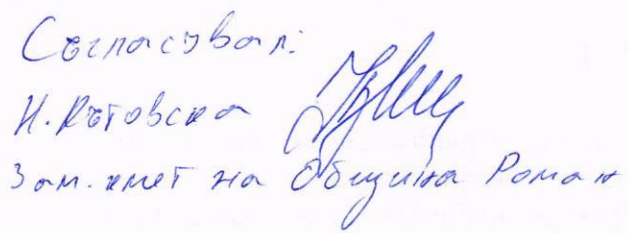 Съгласувал:
Н. Кътовска
Зам. кмет на Община Роман